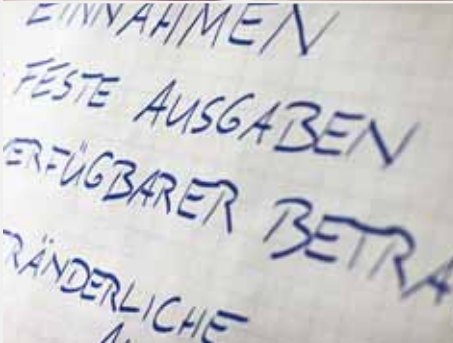 EINNAHMEN
FESTE AUSGABEN
ERFÜGBARER BETRA
RÄNDERLICHE